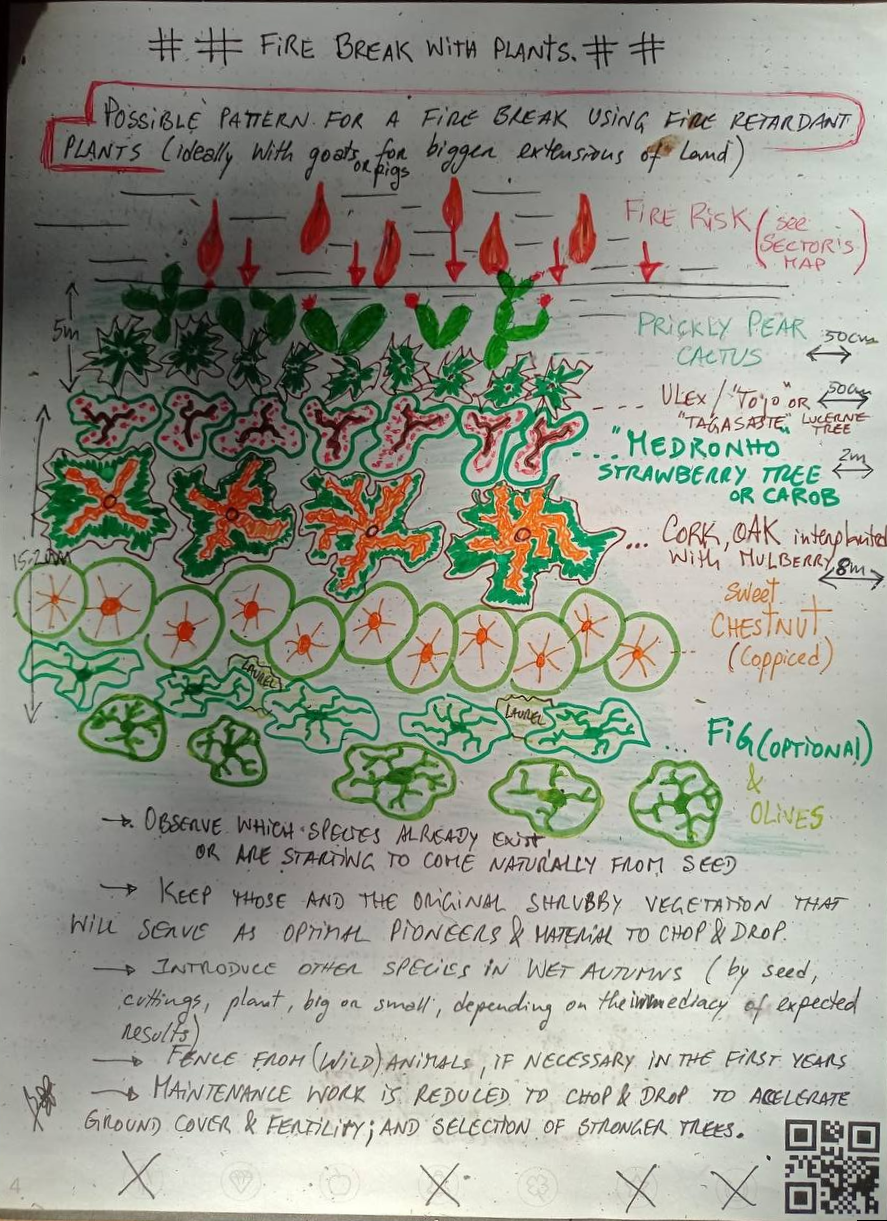 # # FIRE BREAK WITH PLANTS. # #
POSSIBLE PATTERN FOR A FIRE BREAK USING FIRE RETARDANT
PLANTS (ideally with goats for bigger extensions of Land)
or pigs
FIRE RISK (see
SECTOR'S
MAP)
5m
PRICKLY PEAR
CACTUS
50cm
ULEX / "TOJO" OR
50cm
"TAGASASTE" LUCERNE
TREE
"MEDRONHO
STRAWBERRY TREE
OR CAROB
2m
CORK, OAK interplanted
WITH MULBERRY
8m
SWEET
CHESTNUT
(Coppiced)
LAUREL
LAUREL
FIG (OPTIONAL)
&
OLIVES
→ OBSERVE WHICH SPECIES ALREADY EXIST
OR ARE STARTING TO COME NATURALLY FROM SEED
→ KEEP THOSE AND THE ORIGINAL SHRUBBY VEGETATION THAT
WILL SERVE AS OPTIMAL PIONEERS & MATERIAL TO CHOP & DROP.
→ INTRODUCE OTHER SPECIES IN WET AUTUMNS (by seed,
cuttings, plant, big or small, depending on the immediacy of expected
results)
→ FENCE FROM (WILD) ANIMALS, IF NECESSARY IN THE FIRST YEARS
→ MAINTENANCE WORK IS REDUCED TO CHOP & DROP TO ACELERATE
GROUND COVER & FERTILITY; AND SELECTION OF STRONGER TREES.
4